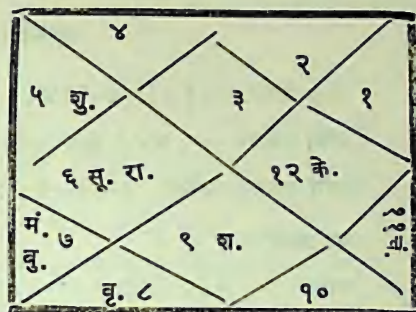 ४
२
५ शु.
३
१
६ सू. रा.
१२ के.
मं.
बु. ७
९ श.
११ चं.
वृ. ८
१०